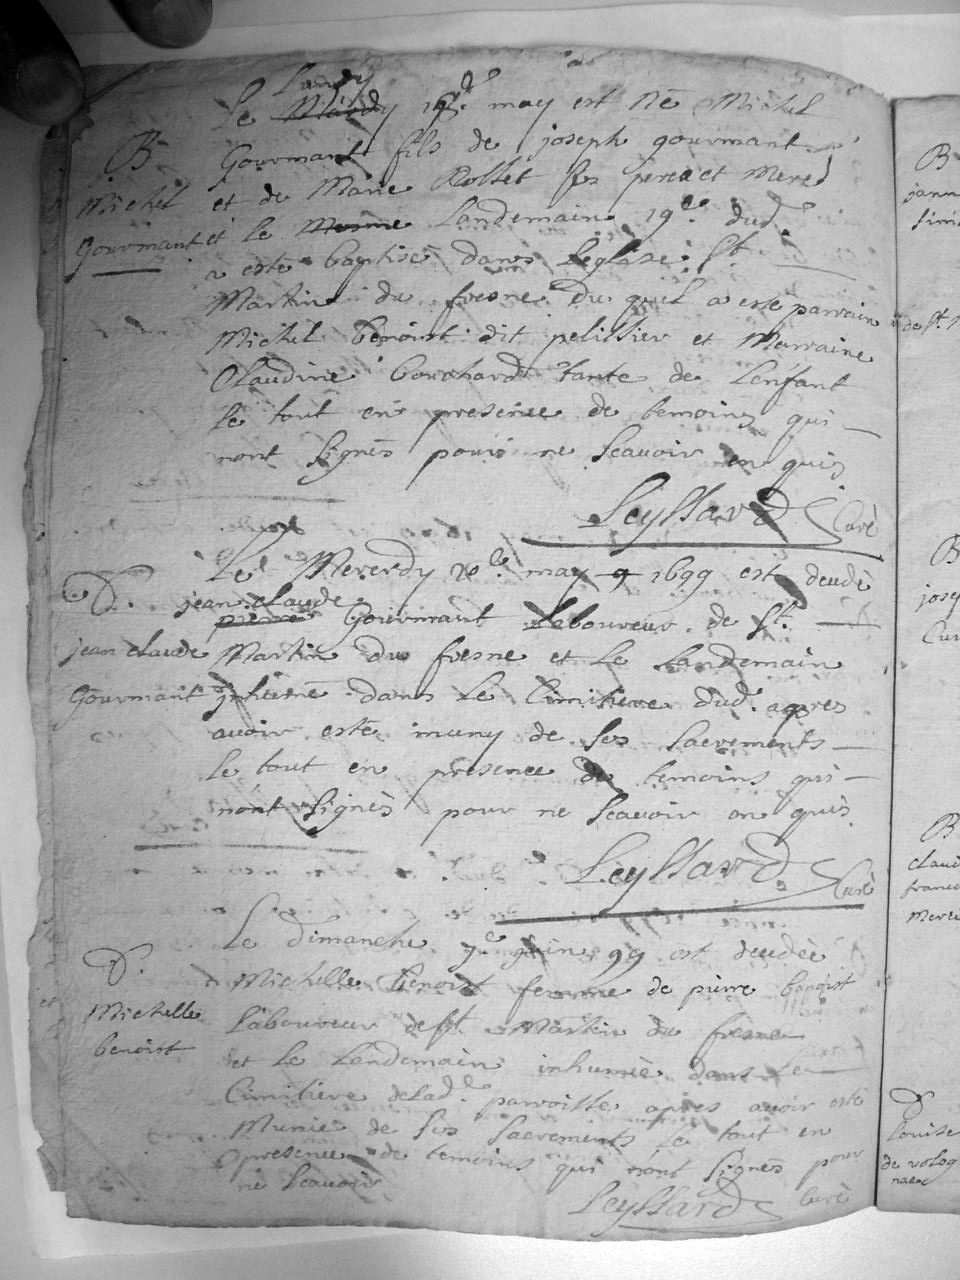 Lundy
Le Mardy 18e may est Né Michel
B Gourmant fils de joseph gourmant
Michel et de Marie Rollet ses pere et Mere
Gourmant et le Mesme Landemain 19e dud.
a esté baptisé dans Leglise St
Martin du fresne du quel a esté parrain
Michel benoist dit pellissier et Marraine
Claudine bouchard tante de Lenfant
le tout en presence de temoins qui
nont signés pour ne scavoir en quis
Leyssard Curé
Le Mererdy 20e may 1699 est decedé
D. jean claude
pierre Gourmant Laboureur de St.
jean claude Martin du fresne et le Landemain
Gourmant inhumé dans le Cimitiere dud. apres
avoir esté muny de ses sacrements
le tout en presence de temoins qui
nont signés pour ne scavoir en quis
Leyssard Curé
Le dimanche 7e juin 99 est decedée
D. Michelle benoist femme de pierre benoist
Michelle Laboureur de St Martin du fresne
benoist et le Lendemain inhumée dans le
Cimitiere de Lad. parroisse apres avoir esté
Munie de ses sacrements le tout en
presence de temoins qui nont signés pour
ne scavoir
Leyssard Curé
B
B
D
Louise